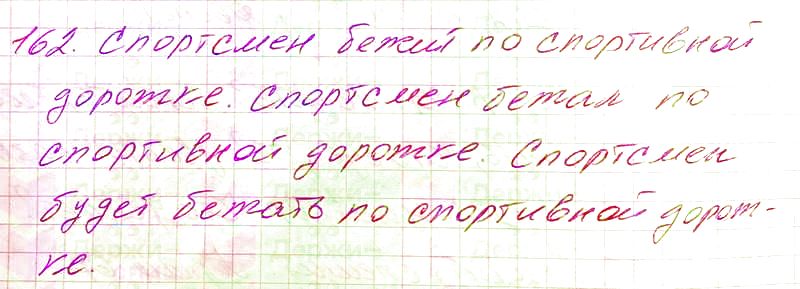 162. Спортсмен бежит по спортивной
дорожке. Спортсмен бежал по
спортивной дорожке. Спортсмен
будет бежать по спортивной дорож-
ке.